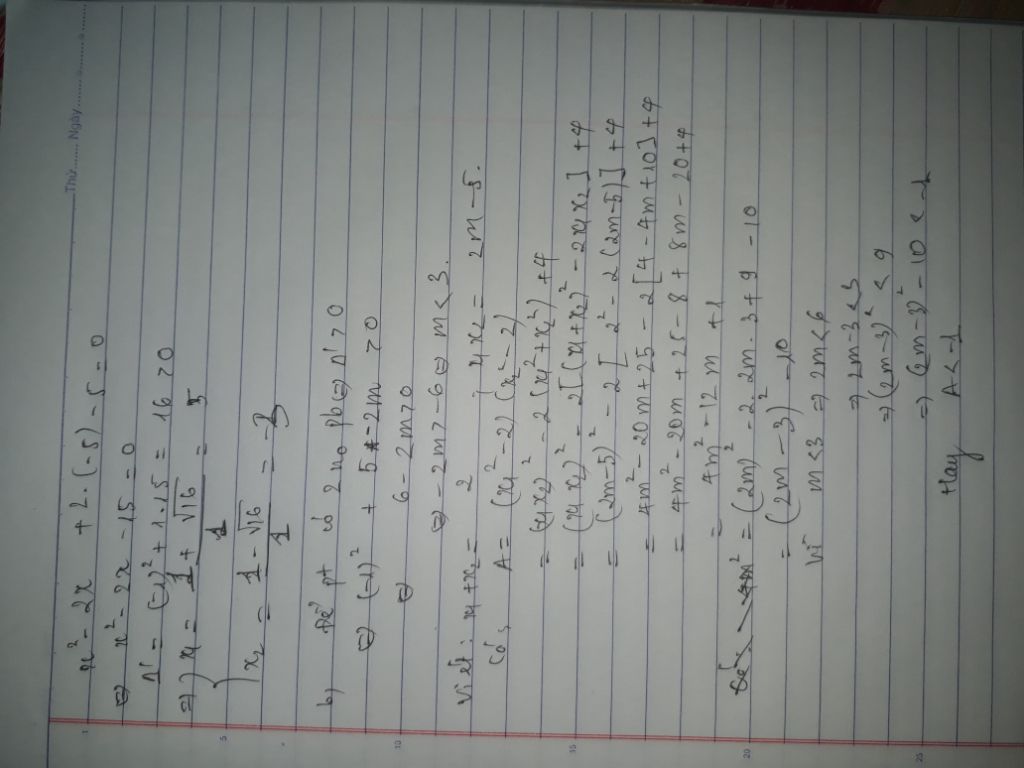 Thứ........ Ngày....................
x² - 2x + 2.(-5) - 5 = 0
⇔ x² - 2x - 15 = 0
Δ' = (-1)² + 1.15 = 16 > 0
⇒ { x₁ = (1 + √16)/1 = 5
x₂ = (1 - √16)/1 = -3
b) Để pt có 2 no pb ⇔ Δ' > 0
⇔ (-1)² + 5 - 2m > 0
⇔ 6 - 2m > 0
⇔ -2m > -6 ⇔ m < 3.
Viét: x₁ + x₂ = 2 ; x₁x₂ = 2m - 5.
Có, A = (x₁² - 2)(x₂² - 2)
= (x₁x₂)² - 2(x₁² + x₂²) + 4
= (x₁x₂)² - 2[(x₁ + x₂)² - 2x₁x₂] + 4
= (2m - 5)² - 2[2² - 2(2m - 5)] + 4
= 4m² - 20m + 25 - 2[4 - 4m + 10] + 4
= 4m² - 20m + 25 - 8 + 8m - 20 + 4
= 4m² - 12m + 1
= (2m)² - 2.2m.3 + 9 - 10
= (2m - 3)² - 10
Vì m < 3 ⇒ 2m < 6
⇒ 2m - 3 < 3
⇒ (2m - 3)² < 9
⇒ (2m - 3)² - 10 < -1
Hay A < -1